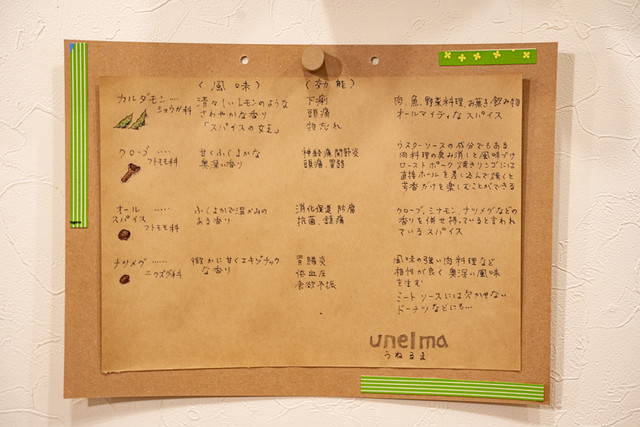 (風味) (効能)
カルダモン‥‥
ショウガ科
清々しいレモンのような
さわやかな香り
「スパイスの女王」
下痢
頭痛
物忘れ
肉、魚、野菜料理、お菓子、飲み物
オールマイティなスパイス
クローブ‥‥
フトモモ科
甘くふくよかな
奥深い香り
神経痛、関節炎
頭痛、胃弱
ウスターソースの成分でもある
肉料理の臭み消しと風味づけ
ローストポーク、焼きリンゴには
直接ホールを差し込んで焼くと
芳香だけを楽しむことができる
オール ‥‥‥
スパイス
フトモモ科
ふくよかで温かみの
ある香り
消化促進
抗菌、鎮痛
クローブ、シナモン、ナツメグなどの
香りを併せ持っていると言われ
ているスパイス
ナツメグ‥‥‥
ニクズク科
微かに甘くエキゾチック
な香り
胃腸炎
低血圧
食欲不振
風味の強い肉料理など
相性が良く奥深い風味
を生む
ミートソースには欠かせない
ドーナツなどにも…
unelma
うねるま